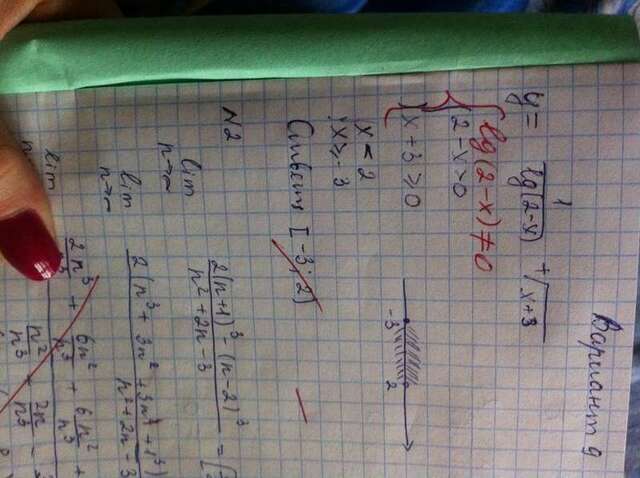 Вариант 9
y = 1/lg(2-x) + √x+3
lg(2-x) ≠ 0
2-x > 0
x+3 ≥ 0
-3 2
x < 2
x ≥ -3
Ответ [-3; 2)
N2
lim n→∞ 2(n+1)³-(n-2)³ / n²+2n-3 =
lim n→∞ 2(n³+3n²+3n+1³) / n²+2n-3
lim 2n³/n³ + 6n²/n³ + 6n²/n³ + / n²/n³ + 2n/n³ -